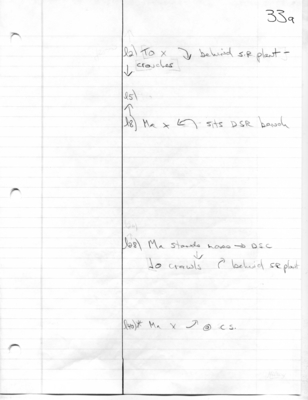 33a
To x ↘ behind SR plant -
↓ crouches
↑
Ma x ↩ sits DSR bench
Ma stands → DSC
↓
To crawls ↱ behind SR plant
Ma X ↗ @ CS.